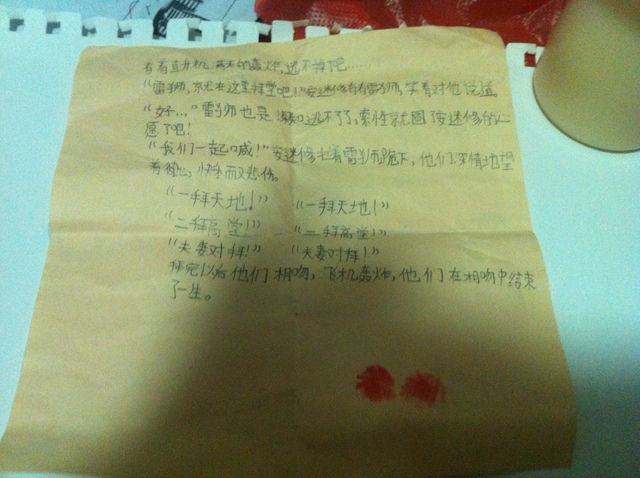 看着直升机满天的轰炸,逃不掉吧……
“雷狮,京尤在这里拜堂吧!”安迷修看着雷狮,笑着对他说道。
“好…”雷狮也是深知逃不了了,索性就圆了安迷修的心
愿了吧!
“我们一起喊!”安迷修拉着雷狮而跪下,他们深情地望
着彼此,快乐而又悲伤。
“一拜天地!” “一拜天地!”
“二拜高堂!” “二拜高堂!”
“夫妻对拜!” “夫妻对拜!”
拜完以后他们相吻,飞机轰炸,他们在相吻中结束
了一生。